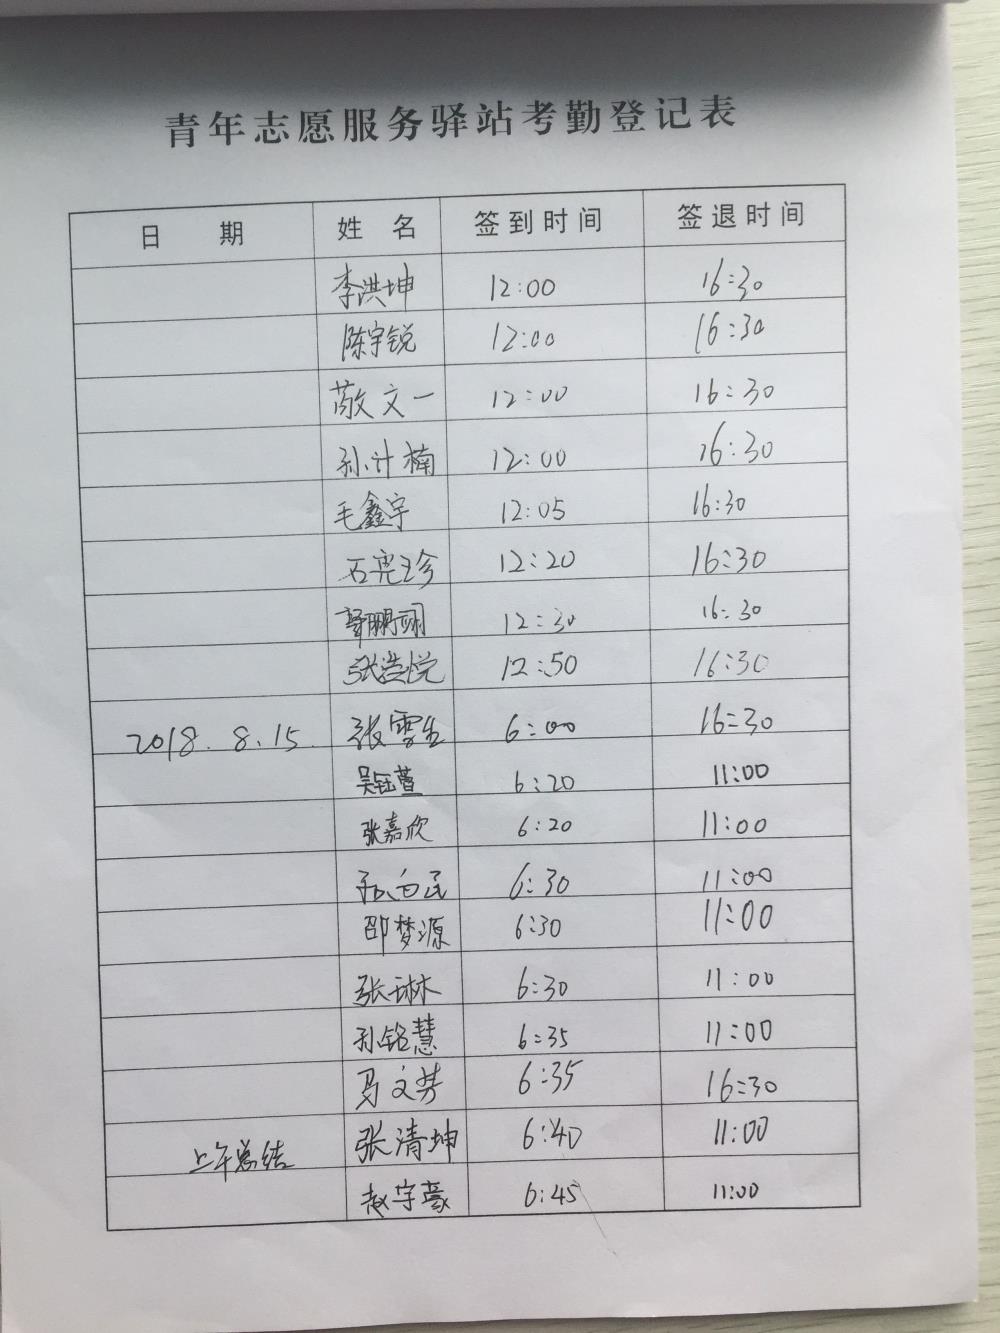 青年志愿服务驿站考勤登记表
日 期 姓 名 签到时间 签退时间
李洪坤 12:00 16:30
陈宇锐 12:00 16:30
敬文一 12:00 16:30
孙计楠 12:00 16:30
毛鑫宇 12:05 16:30
石亮珍 12:20 16:30
12:30 16:30
张浩悦 12:50 16:30
2018.8.15 张雪生 6:00 16:30
吴钰萱 6:20 11:00
张嘉欣 6:20 11:00
6:30 11:00
邵梦源 6:30 11:00
张琳 6:30 11:00
孙铭慧 6:35 11:00
马文芳 6:35 16:30
上午总结 张清坤 6:40 11:00
赵宇豪 6:45 11:00